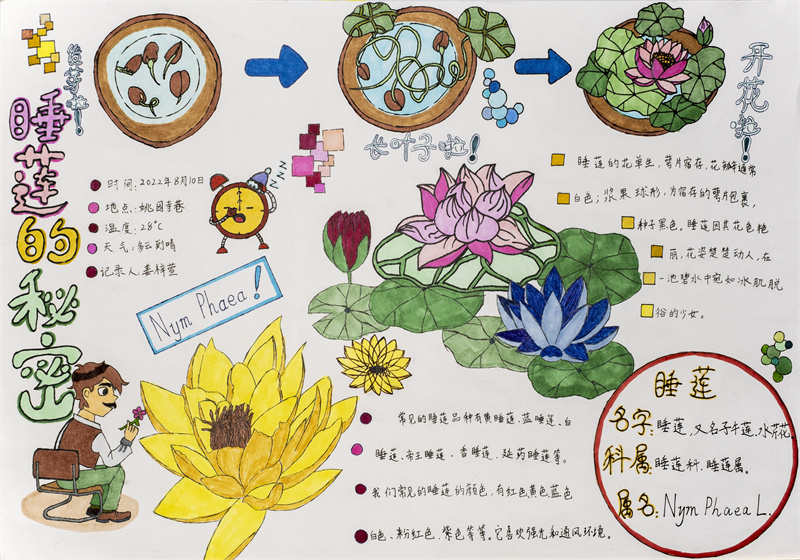 睡莲的秘密
发芽啦!
长叶子啦!
开花啦!
时间:2022年8月10日
地点:姚园寺巷
温度:28°C
天气:多云到晴
记录人:姜梓萱
Nym Phaea!
睡莲的花单生,萼片宿存,花瓣通常
白色;浆果球形,为宿存的萼片包裹,
种子黑色。睡莲因其花色艳
丽,花姿楚楚动人,在
一池碧水中宛如冰肌脱
俗的少女。
常见的睡莲品种有黄睡莲、蓝睡莲、白
睡莲、帝王睡莲、香睡莲、延药睡莲等。
我们常见的睡莲的颜色,有红色黄色蓝色
白色、粉红色、紫色等等。它喜欢强光和通风环境。
睡莲
名字:睡莲,又名子午莲,水芹花。
科属:睡莲科、睡莲属。
属名:Nym Phaea L.
ZZZZ